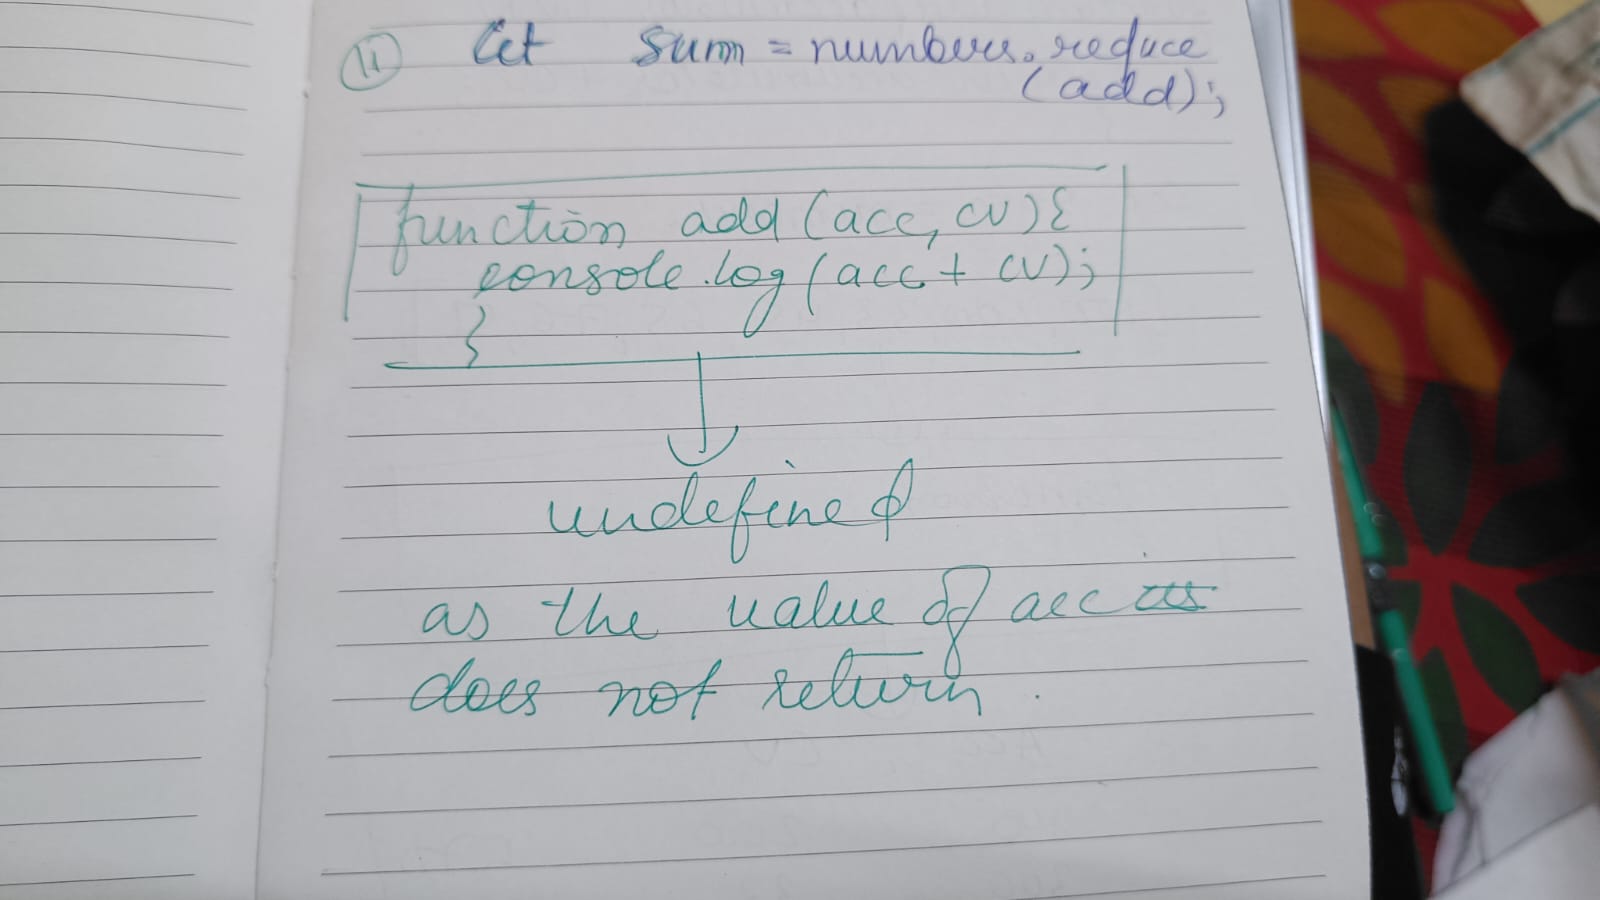 11 let sum = numbers.reduce
(add);
function add (acc, cv) {
console.log (acc + cv);
}
undefined
as the value of acc
does not return.